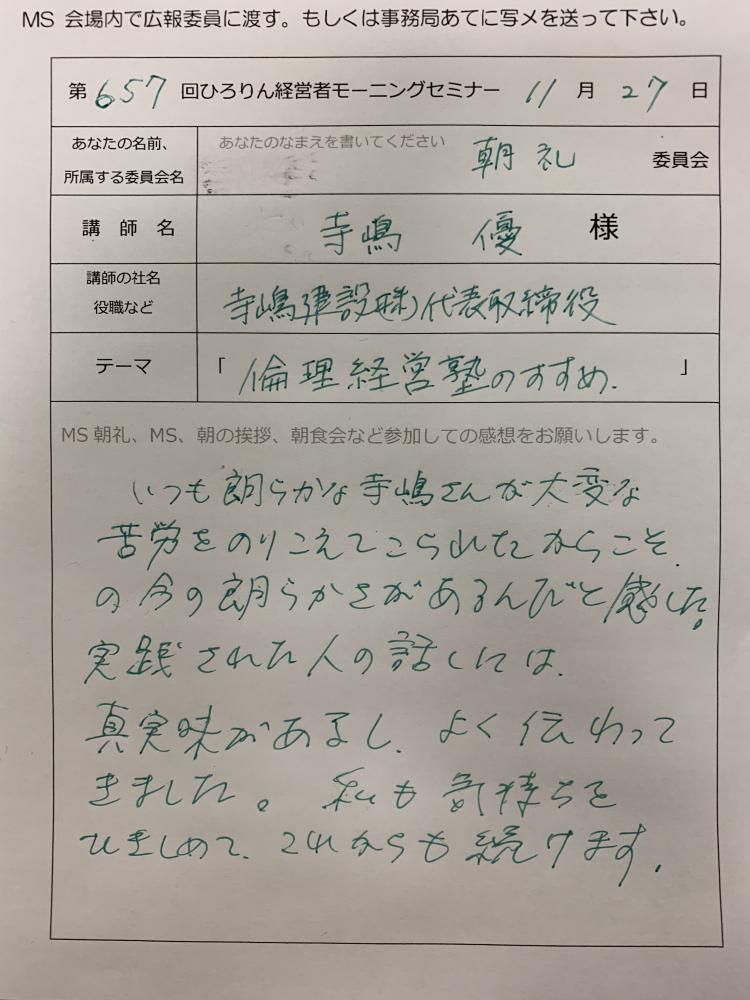 MS 会場内で広報委員に渡す。もしくは事務局あてに写メを送って下さい。
第657回ひろりん経営者モーニングセミナー 11月27日
あなたの名前、
所属する委員会名
あなたのなまえを書いてください 朝礼 委員会
講師名 寺嶋 優 様
講師の社名
役職など
寺嶋建設(株)代表取締役
テーマ 「倫理経営塾のすすめ.」
MS朝礼、MS、朝の挨拶、朝食会など参加しての感想をお願いします。
いつも朗らかな寺嶋さんが大変な
苦労をのりこえてこられたからこそ
の今の朗らかさがあるんだと感じた。
実践された人の話しには、
真実味があるし、よく伝わって
きました。私も気持ちを
ひきしめて、これからも続けます.